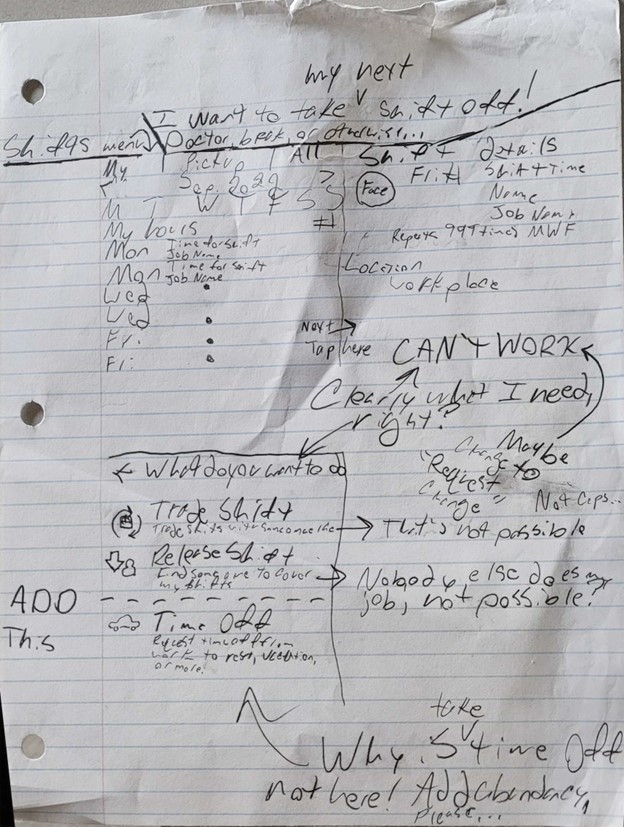 my next
I want to take v shift off!
Shifts menu Doctor, break, or otherwise...
My Pickup All
Sep. 2022 >
M T W T F S S
My hours #H
Mon Time for shift
Job Name
Mon Time for shift
Job Name
Wed
Wed
Fri.
Fri.
Shift Details
Face Fri # Shift Time
Name
Job Name
Repeats 99 times MWF
Location
workplace
Next →
Tap here CAN'T WORK
Clearly what I need,
right?
Maybe
Change to
"Request
Change"
Not Caps...
← What do you want to do
Trade Shift
Trade shifts with someone else → That's not possible
Release Shift
Find someone to cover
my shifts → Nobody else does my
job, not possible?
ADD
This
Time Off
Request time off from
work to rest, vacation,
or more.
take
Why is v time off
not here! Add abundancy,
Please...